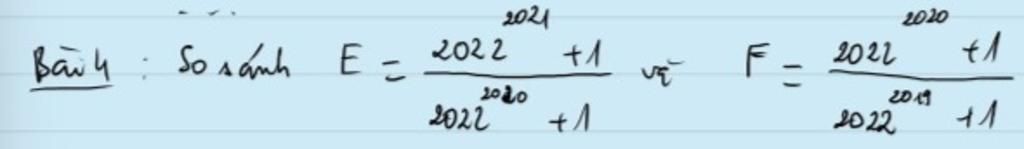 Bài 4 : So sánh E = (2022^2021 + 1) / (2022^2020 + 1) và F = (2022^2020 + 1) / (2022^2019 + 1)